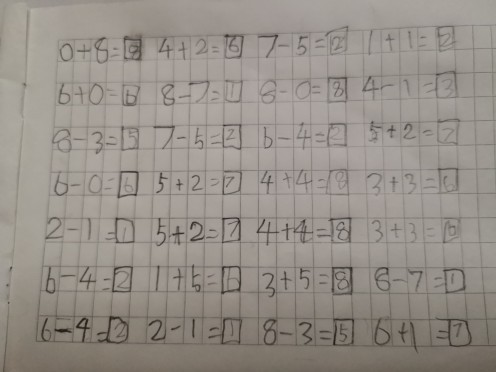 0+8=8 4+2=6 7-5=2 1+1=2
6+0=6 8-7=1 8-0=8 4-1=3
8-3=5 7-5=2 6-4=2 5+2=7
6-0=6 5+2=7 4+4=8 3+3=6
2-1=1 5+2=7 4+4=8 3+3=6
6-4=2 1+5=6 3+5=8 8-7=1
6-4=2 2-1=1 8-3=5 6+1=7